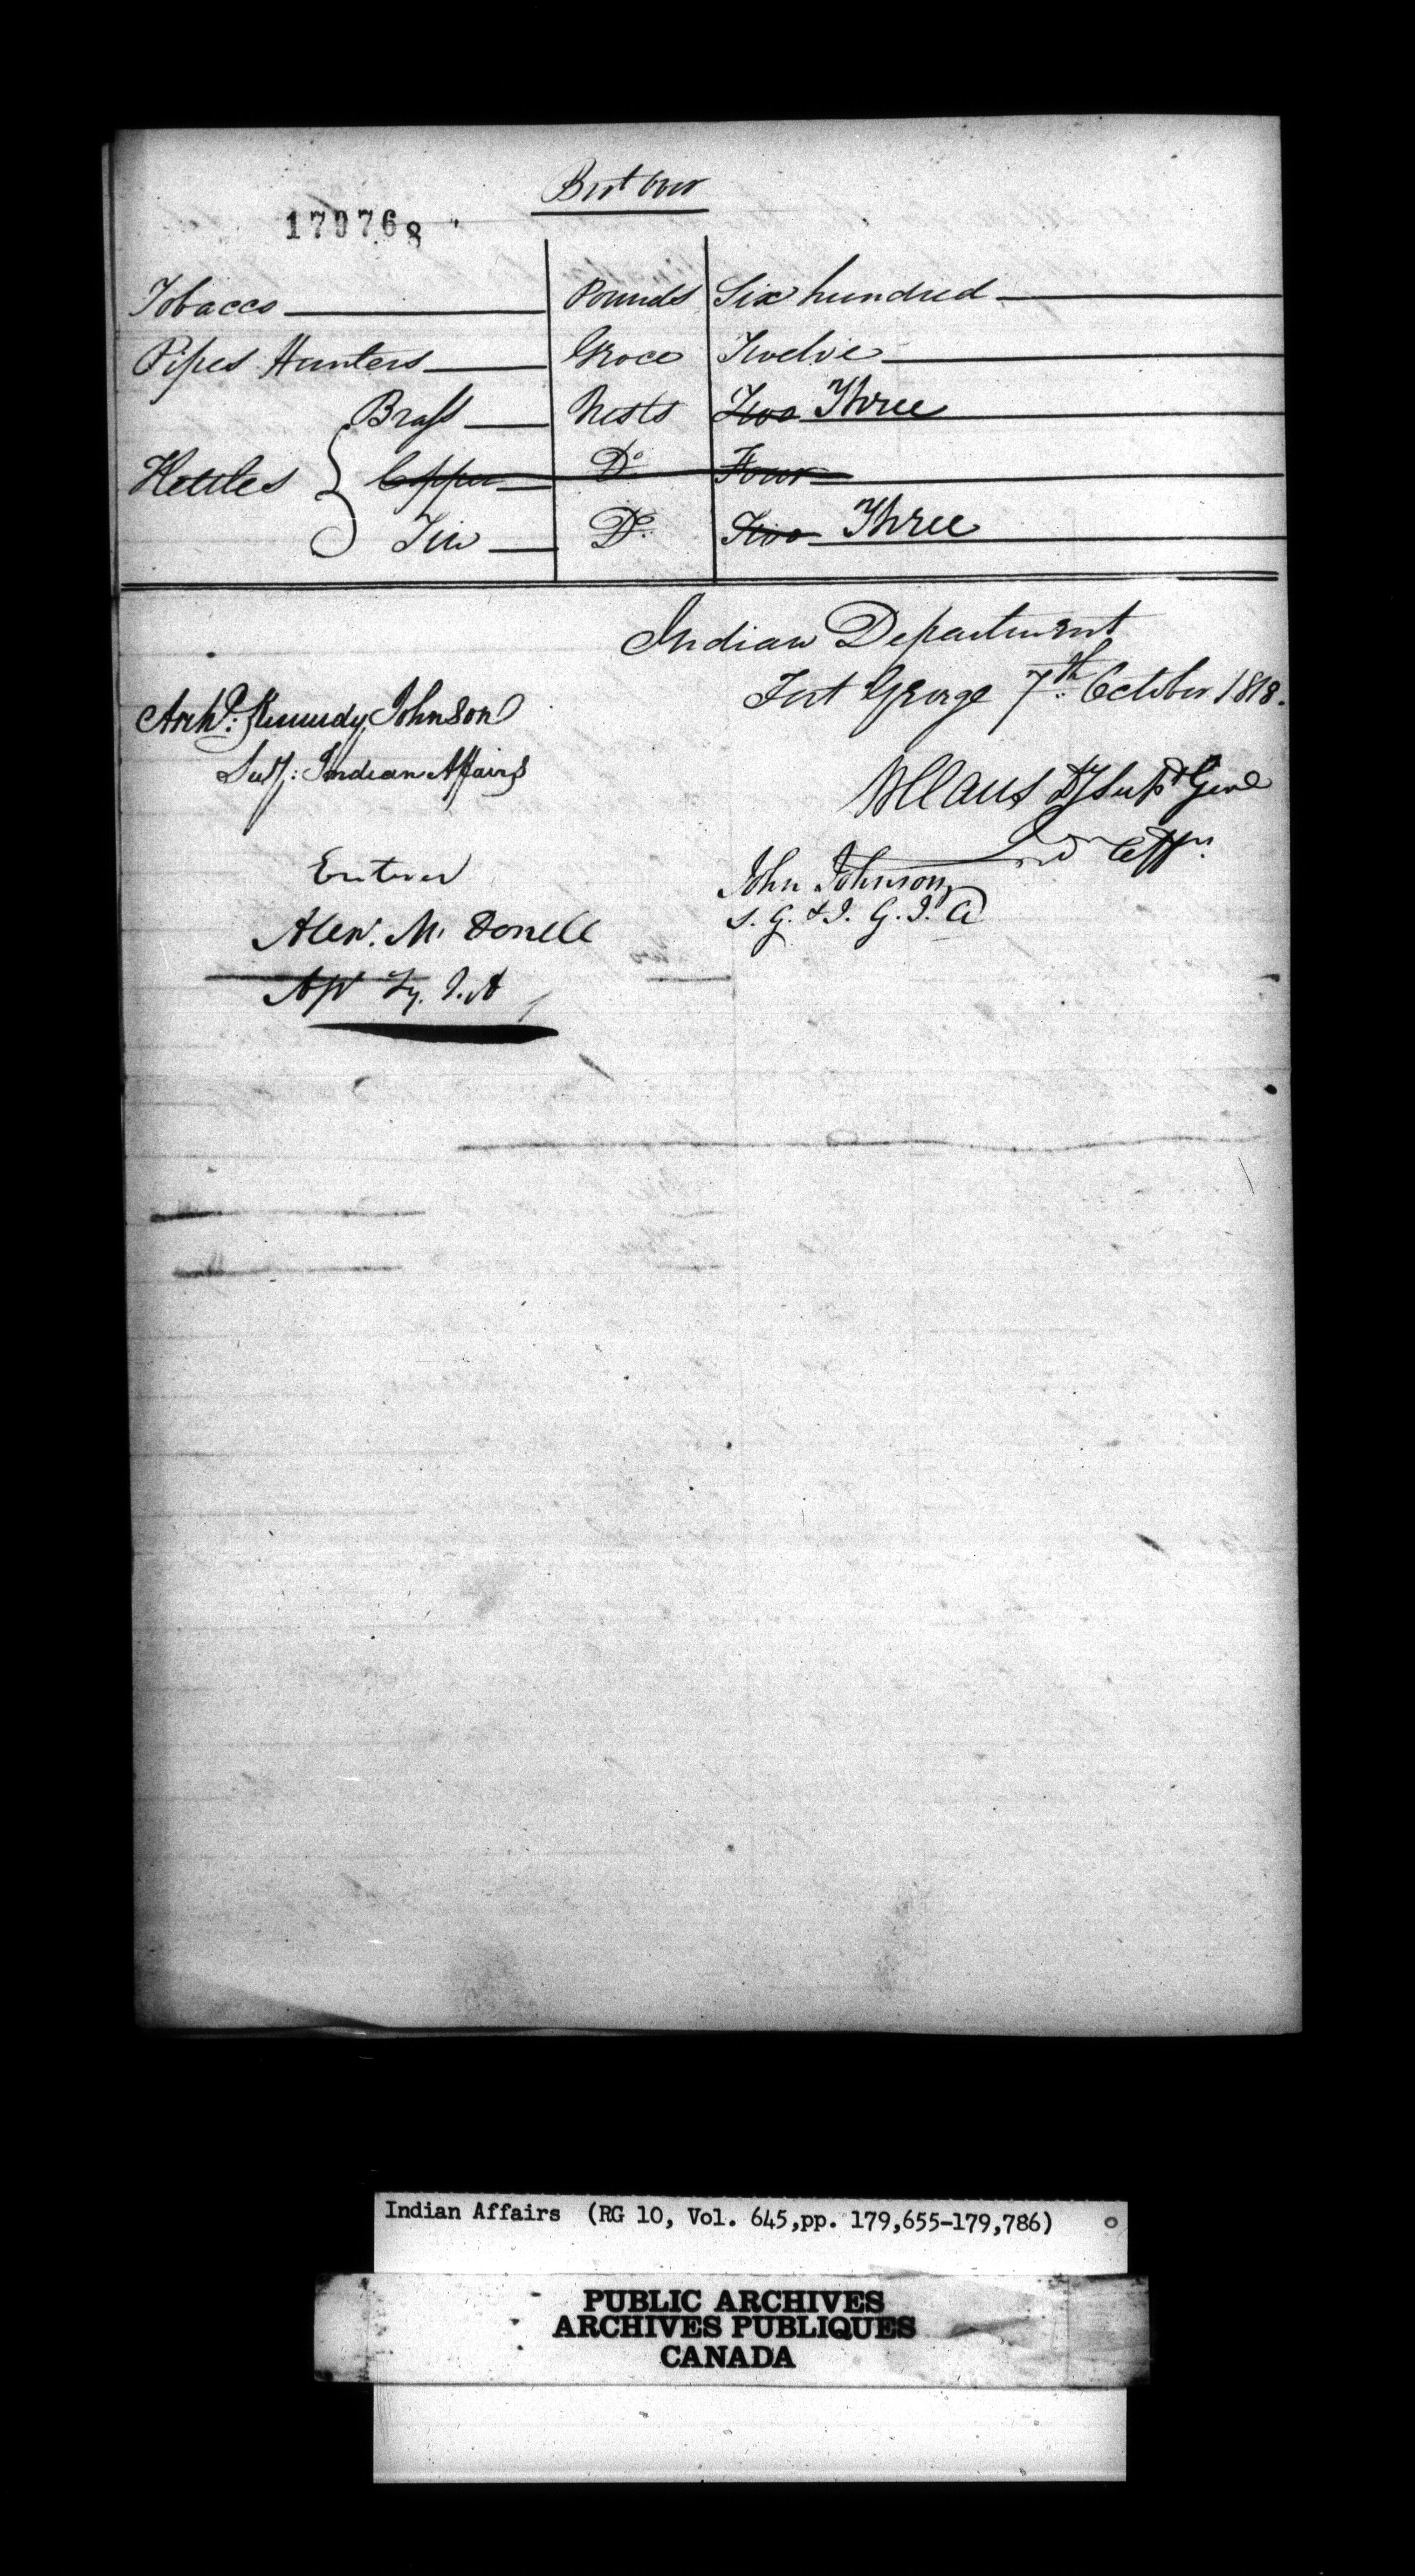 Brt Over
179768
Tobacco Pounds Six hundred
Pipes Hunters Groce Twelve
Brass Nests Two Three
Kettles { Copper Do Four
Tin Do Two Three
Indian Department
Fort George 7th October 1818.
Archd: Kennedy Johnson
Indian Affairs
W Claus Dy Supt Genl
Ind Affrs
John Johnson
S. G. & I. G. I. A
Entered
Alexr. Mc Donell
I. A
Indian Affairs (RG 10, Vol. 645,pp. 179,655-179,786)
PUBLIC ARCHIVES
ARCHIVES PUBLIQUES
CANADA